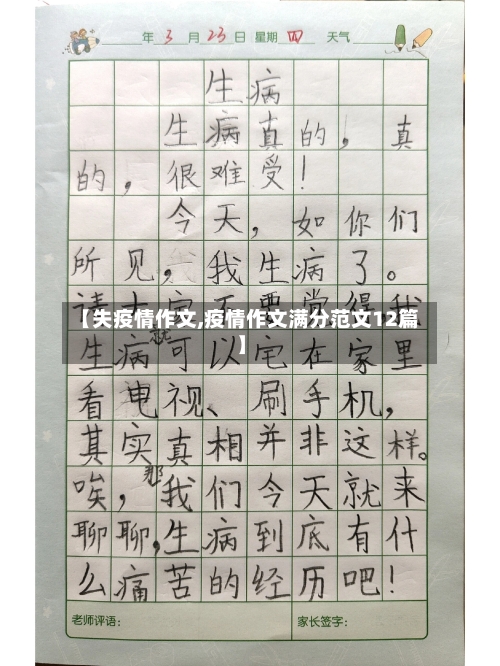 年3月23日 星期四 天气
生病
生病真的，真
的，很难受！
今天，如你们
所见，我生病了。
请大家不要觉得我
【失疫情作文,疫情作文满分范文12篇
】
生病就可以宅在家里
看电视、刷手机，
其实真相并非这样。
唉，那我们今天就来
聊聊，生病到底有什
么痛苦的经历吧！
老师评语： 家长签字：